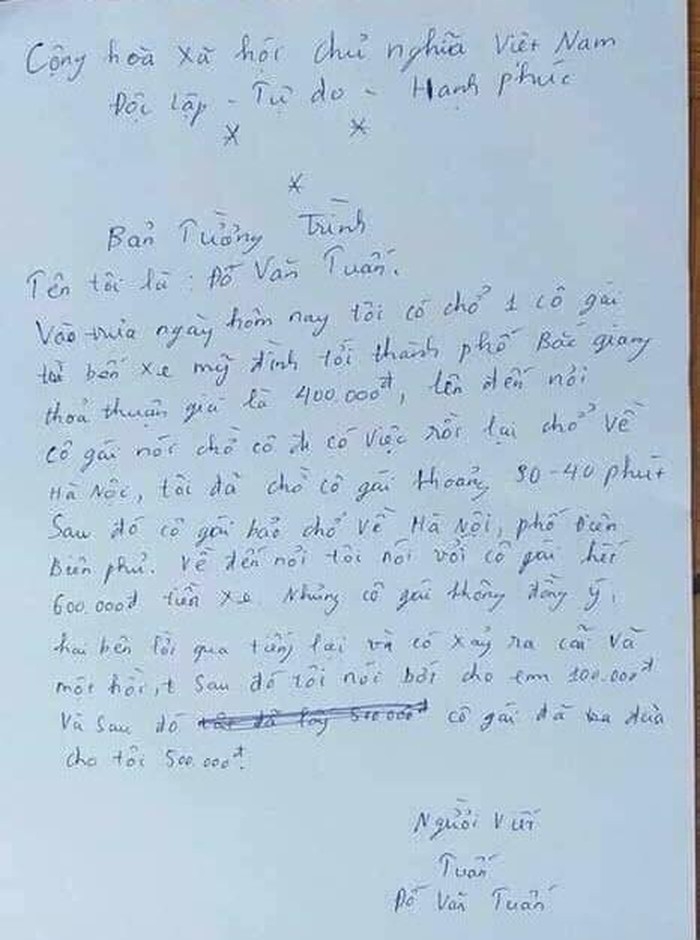 Cộng hoà xã hội chủ nghĩa Việt Nam
Độc lập - Tự do - Hạnh phúc
Bản Tường Trình
Tên tôi là : Đỗ Văn Tuấn.
Vào trưa ngày hôm nay tôi có chở 1 cô gái
từ bến xe mỹ đình tới thành phố Bắc giang
thoả thuận giá là 400.000đ, lên đến nơi
cô gái nói chờ cô ấy có việc rồi lại chở về
Hà Nội, tôi đã chờ cô gái khoảng 30-40 phút
Sau đó cô gái bảo chở về Hà Nội, phố Điện
Biên phủ. Về đến nơi tôi nói với cô gái hết
600.000đ tiền xe. Nhưng cô gái không đồng ý.
hai bên lời qua tiếng lại và có xảy ra cãi vã
một hồi, sau đó tôi nói bớt cho em 100.000đ
Và sau đó tôi đã lấy 500.000đ cô gái đã đưa
cho tôi 500.000đ.
Người viết
Tuấn
Đỗ Văn Tuấn